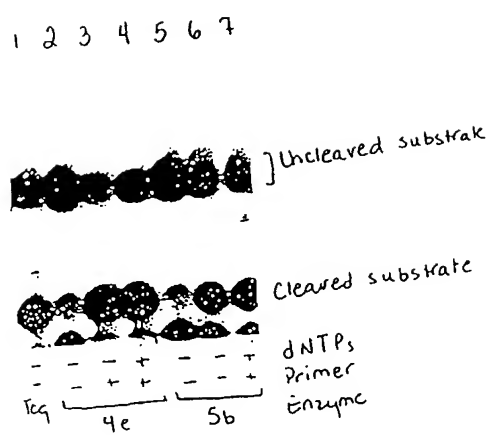 1 2 3 4 5 6 7
] Uncleaved substrate
Cleaved substrate
- - - + - - + dNTPs
- - + + - - + Primer
Taq 4e 5b Enzyme